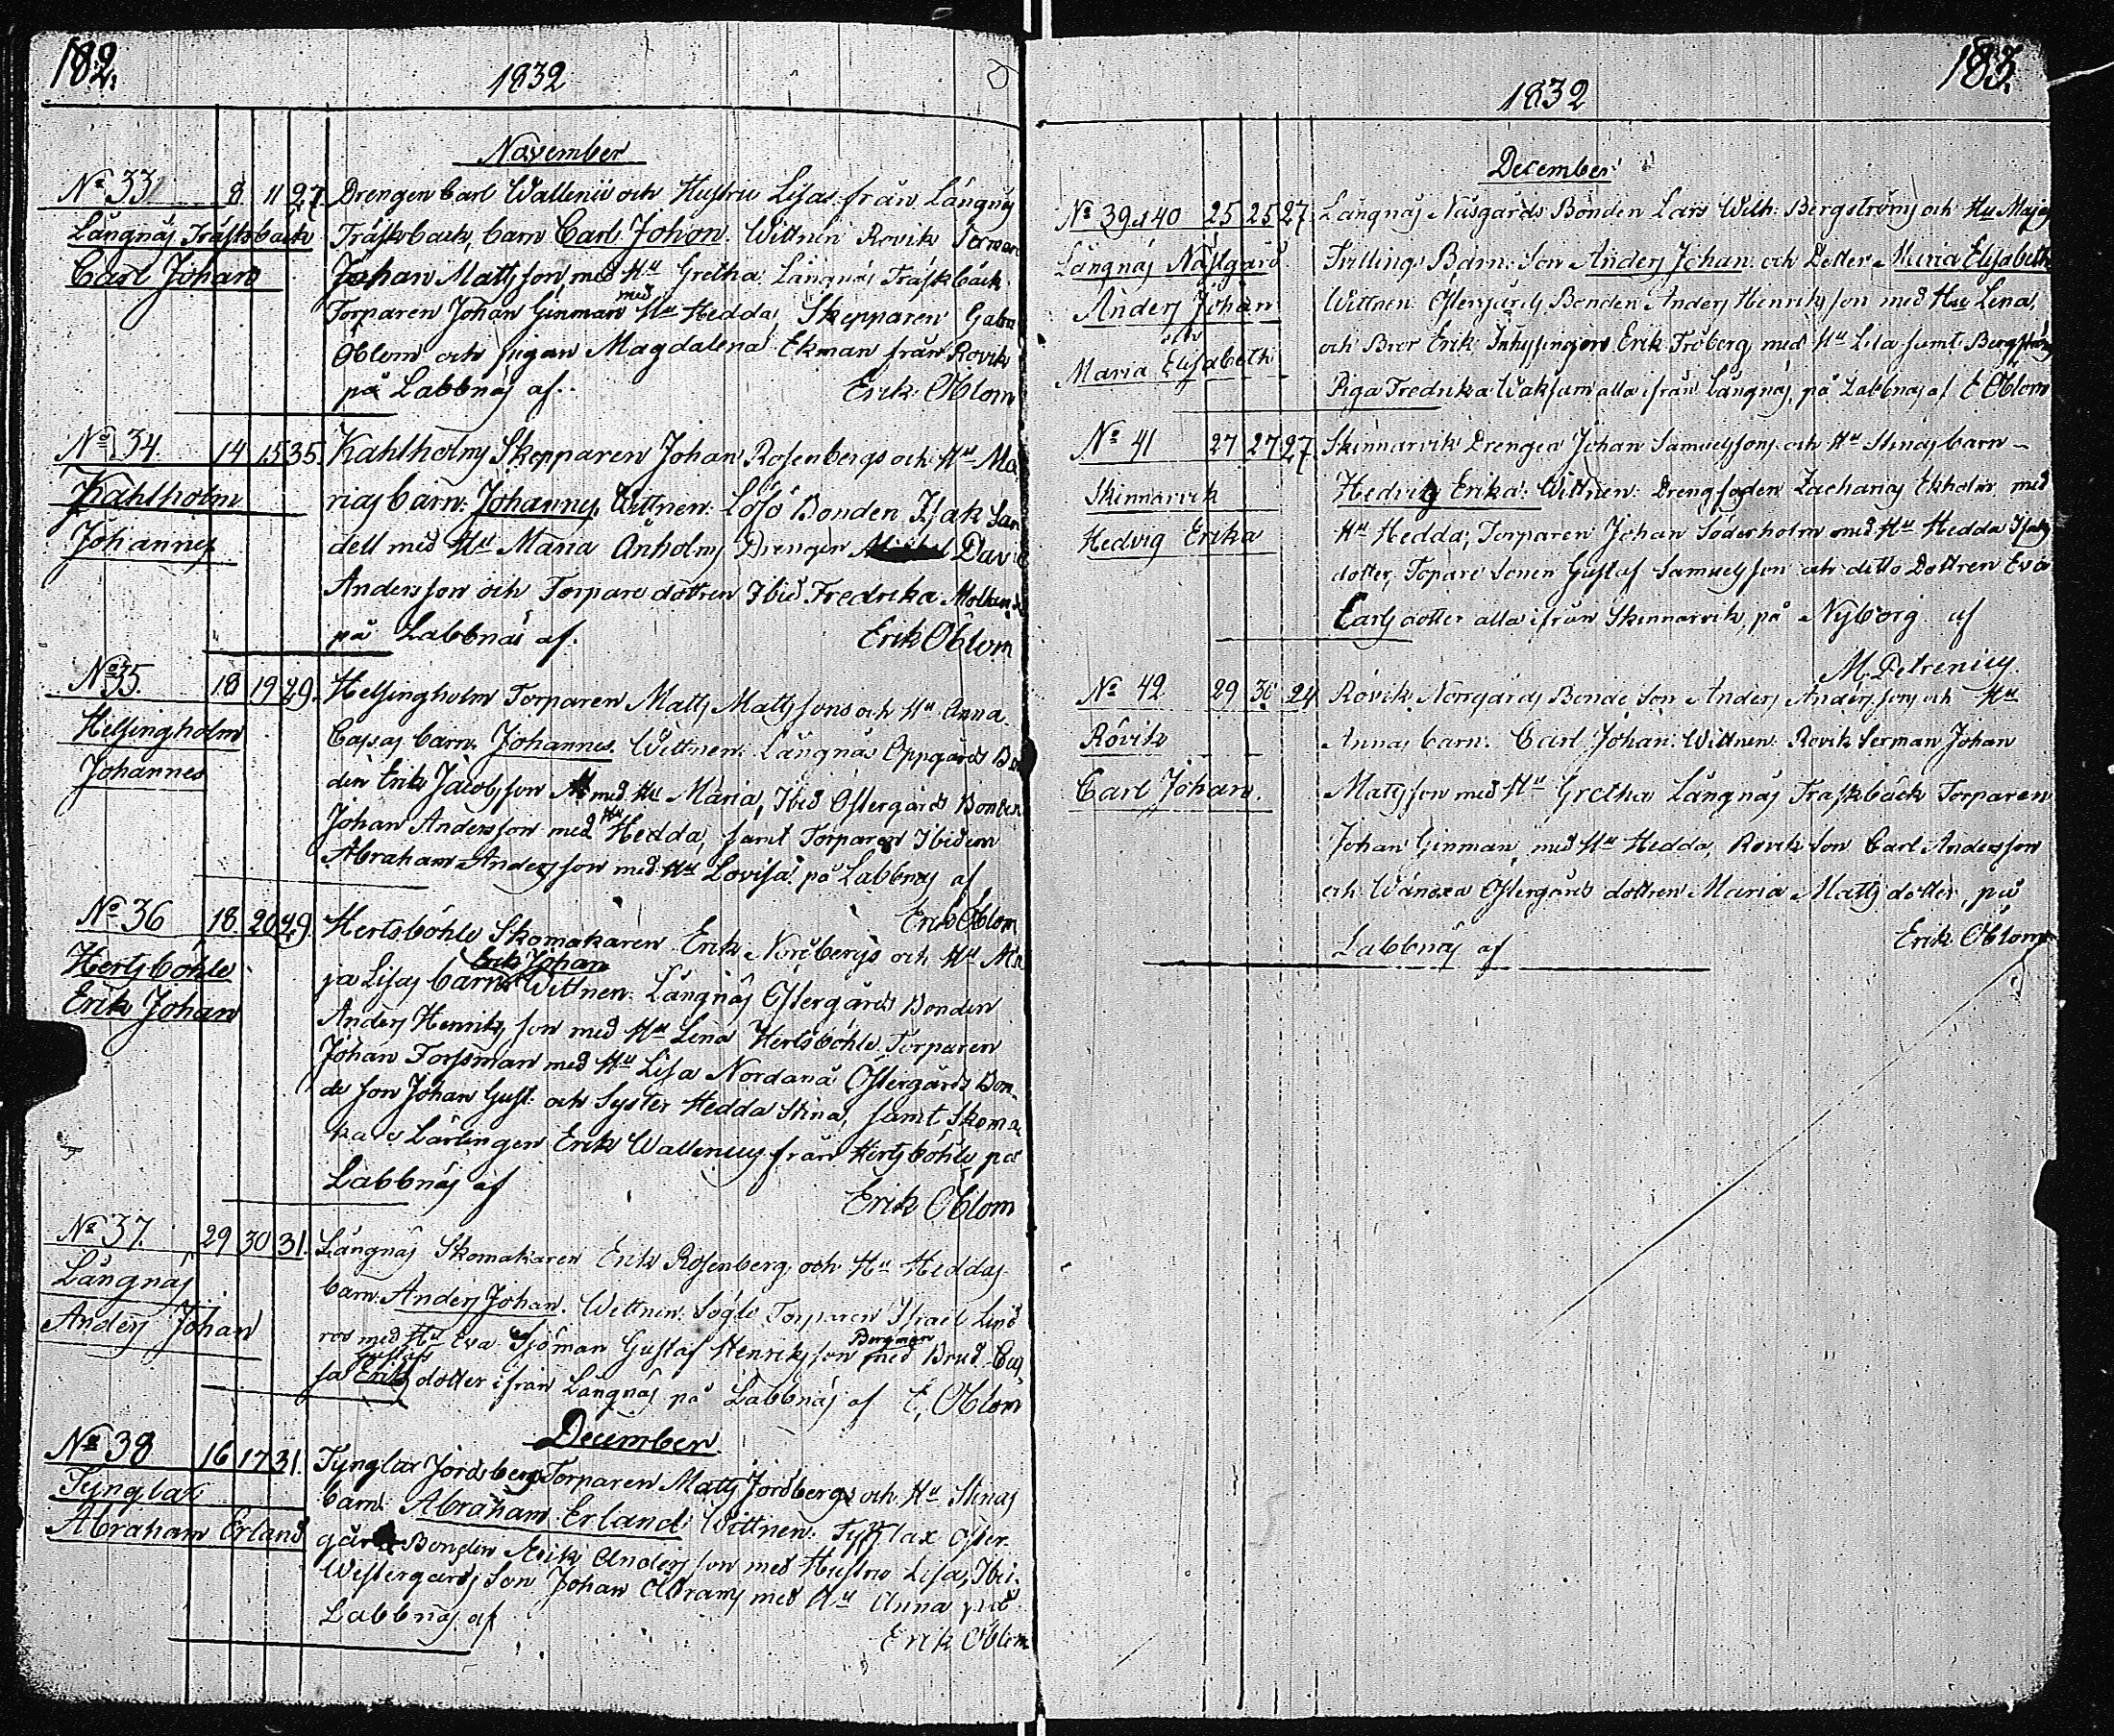 182.
1832
November
No 33 8 11 27.
Långnäs Träskback
Carl Johan
Drengen Carl Wallenii och Hustru Lisas från Långnäs
Träskback, barn Carl Johan. Wittnen Rovik Serman
Johan Mattsson, med Hu Gretha. Långnäs Träskback
Torparen Johan Ginman med Hu Hedda, Skepparen Gabr
Öblom och pigan Magdalena Ekman från Rovik
på Labbnäs af. Erik Öblom
No 34. 14 15 35.
Kahlholm
Johannes
Kahlholms Skepparen Johan Rosenbergs och Hu Ma
rias barn: Johannes, Wittnen: Lösö Bonden Isak San
dell med Hu Maria Ånholms Drengen David
Andersson och Torpare dottren Ibid Fredrika
på Labbnäs af. Erik Öblom
No 35. 18 19 29.
Helsingholm
Johannes
Helsingholm Torparen Matts Mattssons och Hu Anna
Cajsas barn: Johannes. Wittnen: Långnäs Oppgårds Bon
den Erik Jacobsson med Hu Maria, Ibid Östergårds Bonden
Johan Andersson med Hu Hedda, samt Torparen Ibidem
Abraham Andersson med Hu Lovisa. på Labbnäs af
Erik Öblom
No 36 18. 20 29.
Hertsböhle
Erik Johan
Hertsböhle Skomakaren Erik Nordbergs och Hu Ma
ja Lisas barn Erik Johan Wittnen: Långnäs Östergårds Bonden
Anders Henriksson med Hu Lena Hertsböhle Torparen
Johan Forssman med Hu Lisa Nordanå Östergårds Bon-
de son Johan Gust. och Syster Hedda Stina, samt Skoma
kare Lärlingen Erik Wallenius från Hertsböhle på
Labbnäs af Erik Öblom
No 37. 29 30 31.
Långnäs
Anders Johan
Långnäs Skomakaren Erik Rosenberg och Hu Heddas
barn: Anders Johan. Wittnen: Sögle Torparen Israel Lind
ros med Hu Eva Sjöman Gustaf Henriksson Bergman med Brud Caj
sa Gustafs Eriks dotter ifrån Långnäs på Labbnäs af E, Öblom
December
No 38 16 17 31.
Tynglax
Abraham Erland
Tynglax Jordsbergs Torparen Matts Jordbergs och Hu Stinas
barn: Abraham Erland Wittnen: Tynglax Öster
gård Bonden Erik Andersson med Hustru Lisa, Ibi.
Westergårds Son Johan Abrams med Hu Anna på
Labbnäs af
Erik Öblom
183.
1832
December
No 39 et 40 25 25 27.
Långnäs Näsgård
Anders Johan
och
Maria Elisabeth
Långnäs Näsgårds Bonden Lars Wilh: Bergströms och Hu Majas
Tvillings Barn: Son Anders Johan och Dotter Maria Elisabeth
Wittnen: Östergårds Bonden Anders Henriksson med Hu Lena,
och Bror Erik Inhysingen Erik Fröberg med Hu Lisa samt Bergströms
Piga Fredrika Waksam alla ifrån Långnäs, på Labbnäs af E Öblom
No 41 27 27 27.
Skinnarvik
Hedvig Erika
Skinnarvik Drengen Johan Samuelssons och Hu Stinas barn
Hedvig Erika: Wittnen: Drengfogden Zacharias Ekholm med
Hu Hedda, Torparen Johan Söderholm med Hu Hedda Isaks
dotter, Topare Sonen Gustaf Samuelsson och ditto Dottren Eva
Carls dotter alla ifrån Skinnarvik, på Nyborg af
M. Petrenius.
No 42 29 30 24
Rövik
Carl Johan.
Rövik Norrgårds Bonde Son Anders Anderssons och Hu
Annas barn: Carl Johan: Wittnen: Rovik Serman Johan
Mattsson med Hu Gretha Långnäs Träskbäck Torparen
Johan Ginman, med Hu Hedda, Rovik Son Carl Andersson
och Wänoxa Östergårds dottren Maria Matts dotter, på
Labbnäs af Erik Öblom